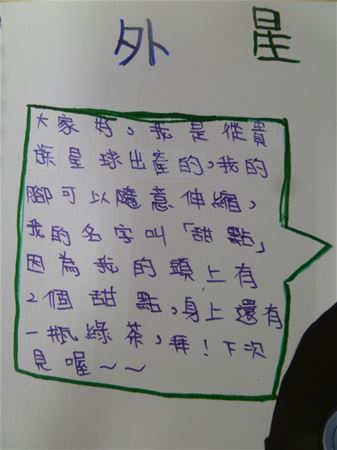 外星
大家好。我是從貴
族星球出產的,我的
腳可以隨意伸縮,
我的名字叫「甜點」
因為我的頭上有
2個甜點,身上還有
一瓶綠茶,拜!下次
見喔~~